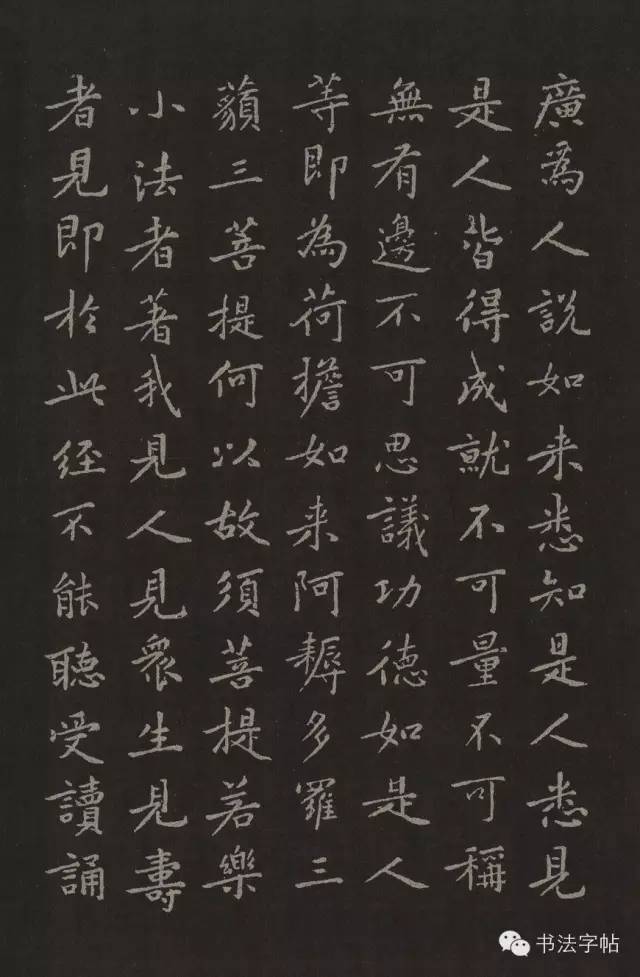 廣為人說如来悉知是人悉見
是人皆得成就不可量不可稱
無有邊不可思議功德如是人
等即為荷擔如来阿耨多羅三
藐三菩提何以故須菩提若樂
小法者著我見人見眾生見壽
者見即於此經不能聽受讀誦
书法字帖